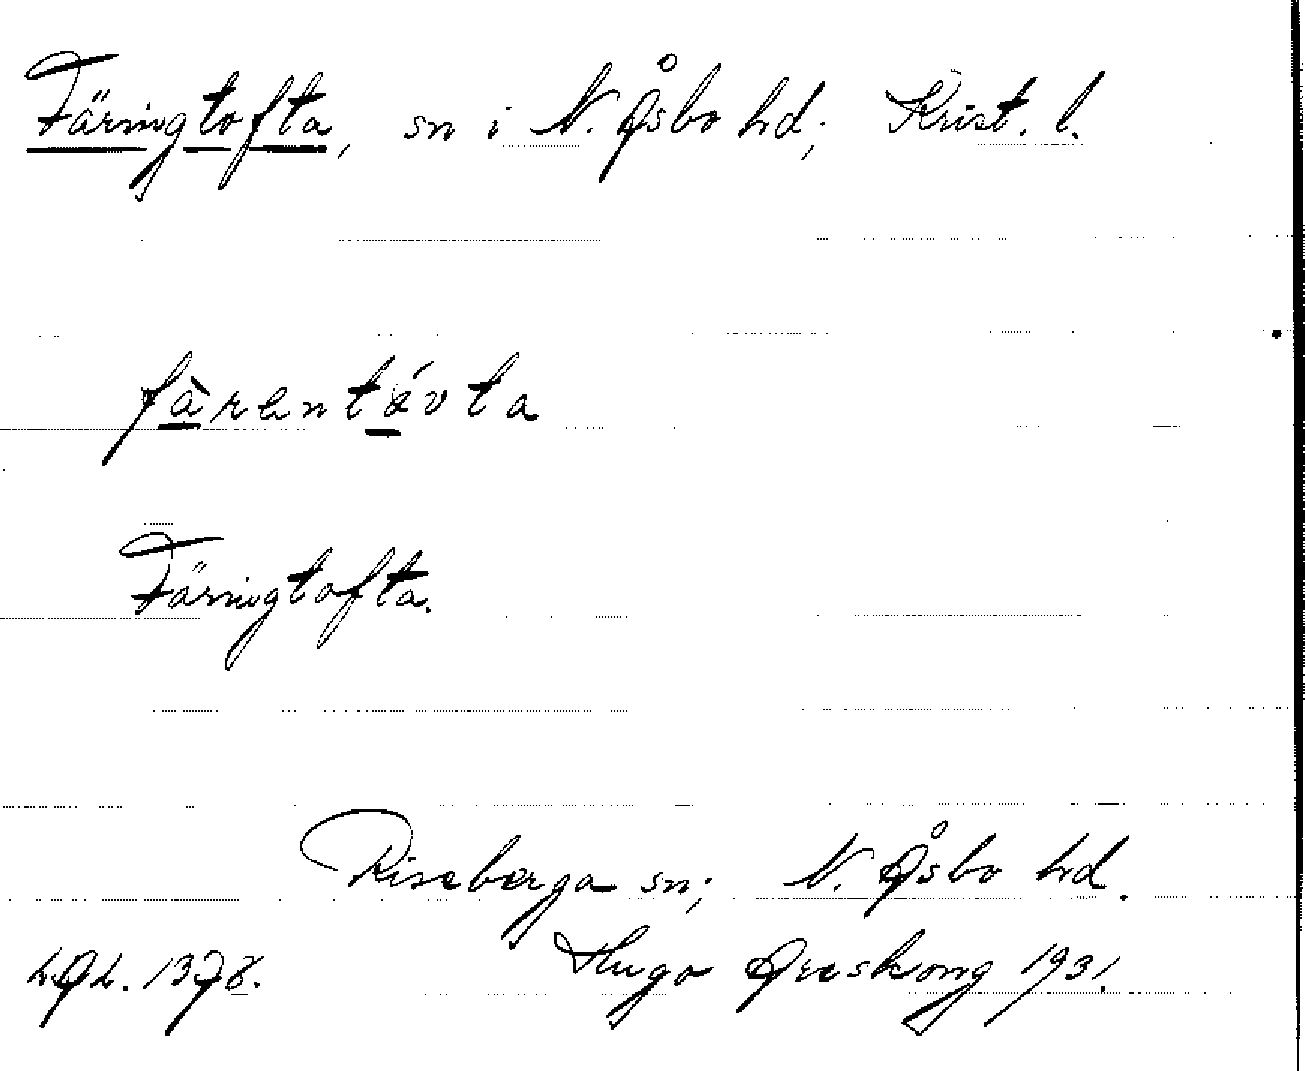 Färingtofta, sn i N. Åsbo hd; Krist. l.
fàrentávta
Färingtofta.
Riseberga sn; N. Åsbo hd.
1378.
Hugo Areskoug 1931.